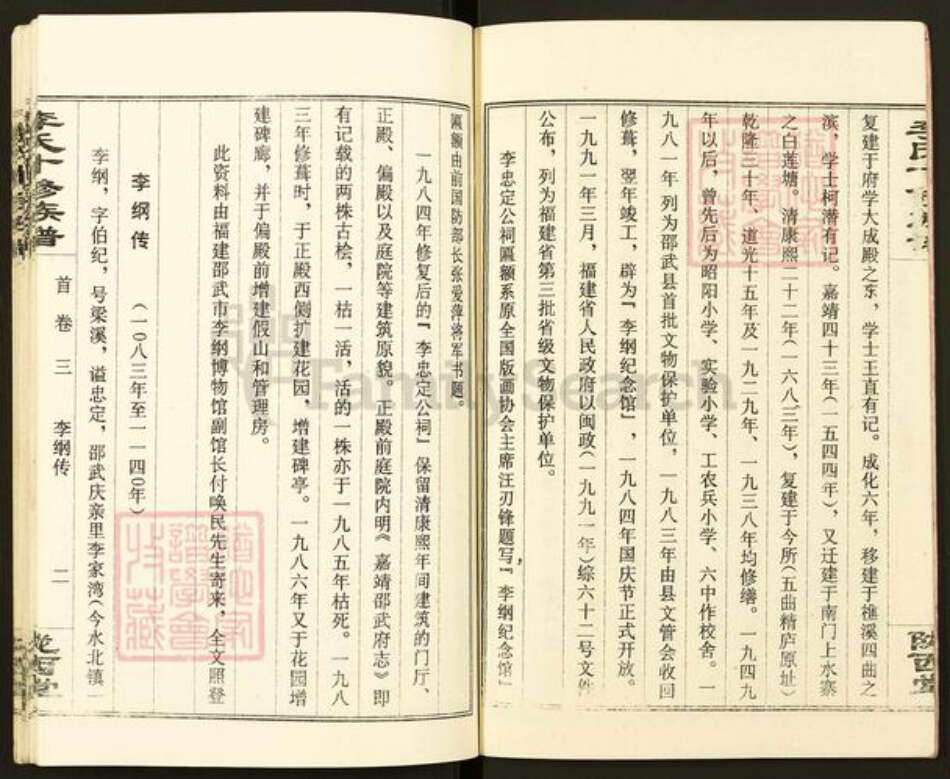 复建于府学大成殿之东，学士王直有记。成化六年，移建于樵溪四曲之
滨，学士柯潜有记。嘉靖四十三年（一五四四年），又迁建于南门上水寨
之白莲塘。清康熙二十二年（一六八三年），复建于今所（五曲精庐原址）
乾隆三十年、道光十五年及一九二九年、一九三八年均修缮。一九四九
年以后，曾先后为昭阳小学、实验小学、工农兵小学、六中作校舍。一
九八一年列为邵武县首批文物保护单位，一九八三年由县文管会收回
修葺，翌年竣工，辟为“李纲纪念馆”，一九八四年国庆节正式开放。
一九九一年三月，福建省人民政府以闽政（一九九一年）综六十二号文件
公布，列为福建省第三批省级文物保护单位。
李忠定公祠匾额系原全国版画协会主席汪刃锋题写，“李纲纪念馆”
匾额由前国防部长张爱萍将军书题。
一九八四年修复后的“李忠定公祠”保留清康熙年间建筑的门厅、
正殿、偏殿以及庭院等建筑原貌。正殿前庭院内明《嘉靖邵武府志》即
有记载的两株古桧，一枯一活，活的一株亦于一九八五年枯死。一九八
三年修葺时，于正殿西侧扩建花园，增建碑亭。一九八六年又于花园增
建碑廊，并于偏殿前增建假山和管理房。
此资料由福建邵武市李纲博物馆副馆长付唤民先生寄来，全文照登
李纲传 （一〇八三年至一一四〇年）
李纲，字伯纪，号梁溪，谥忠定，邵武庆亲里李家湾（今水北镇一
李氏十修族谱
首卷三 李纲传 二
陇西堂
FamilySearch